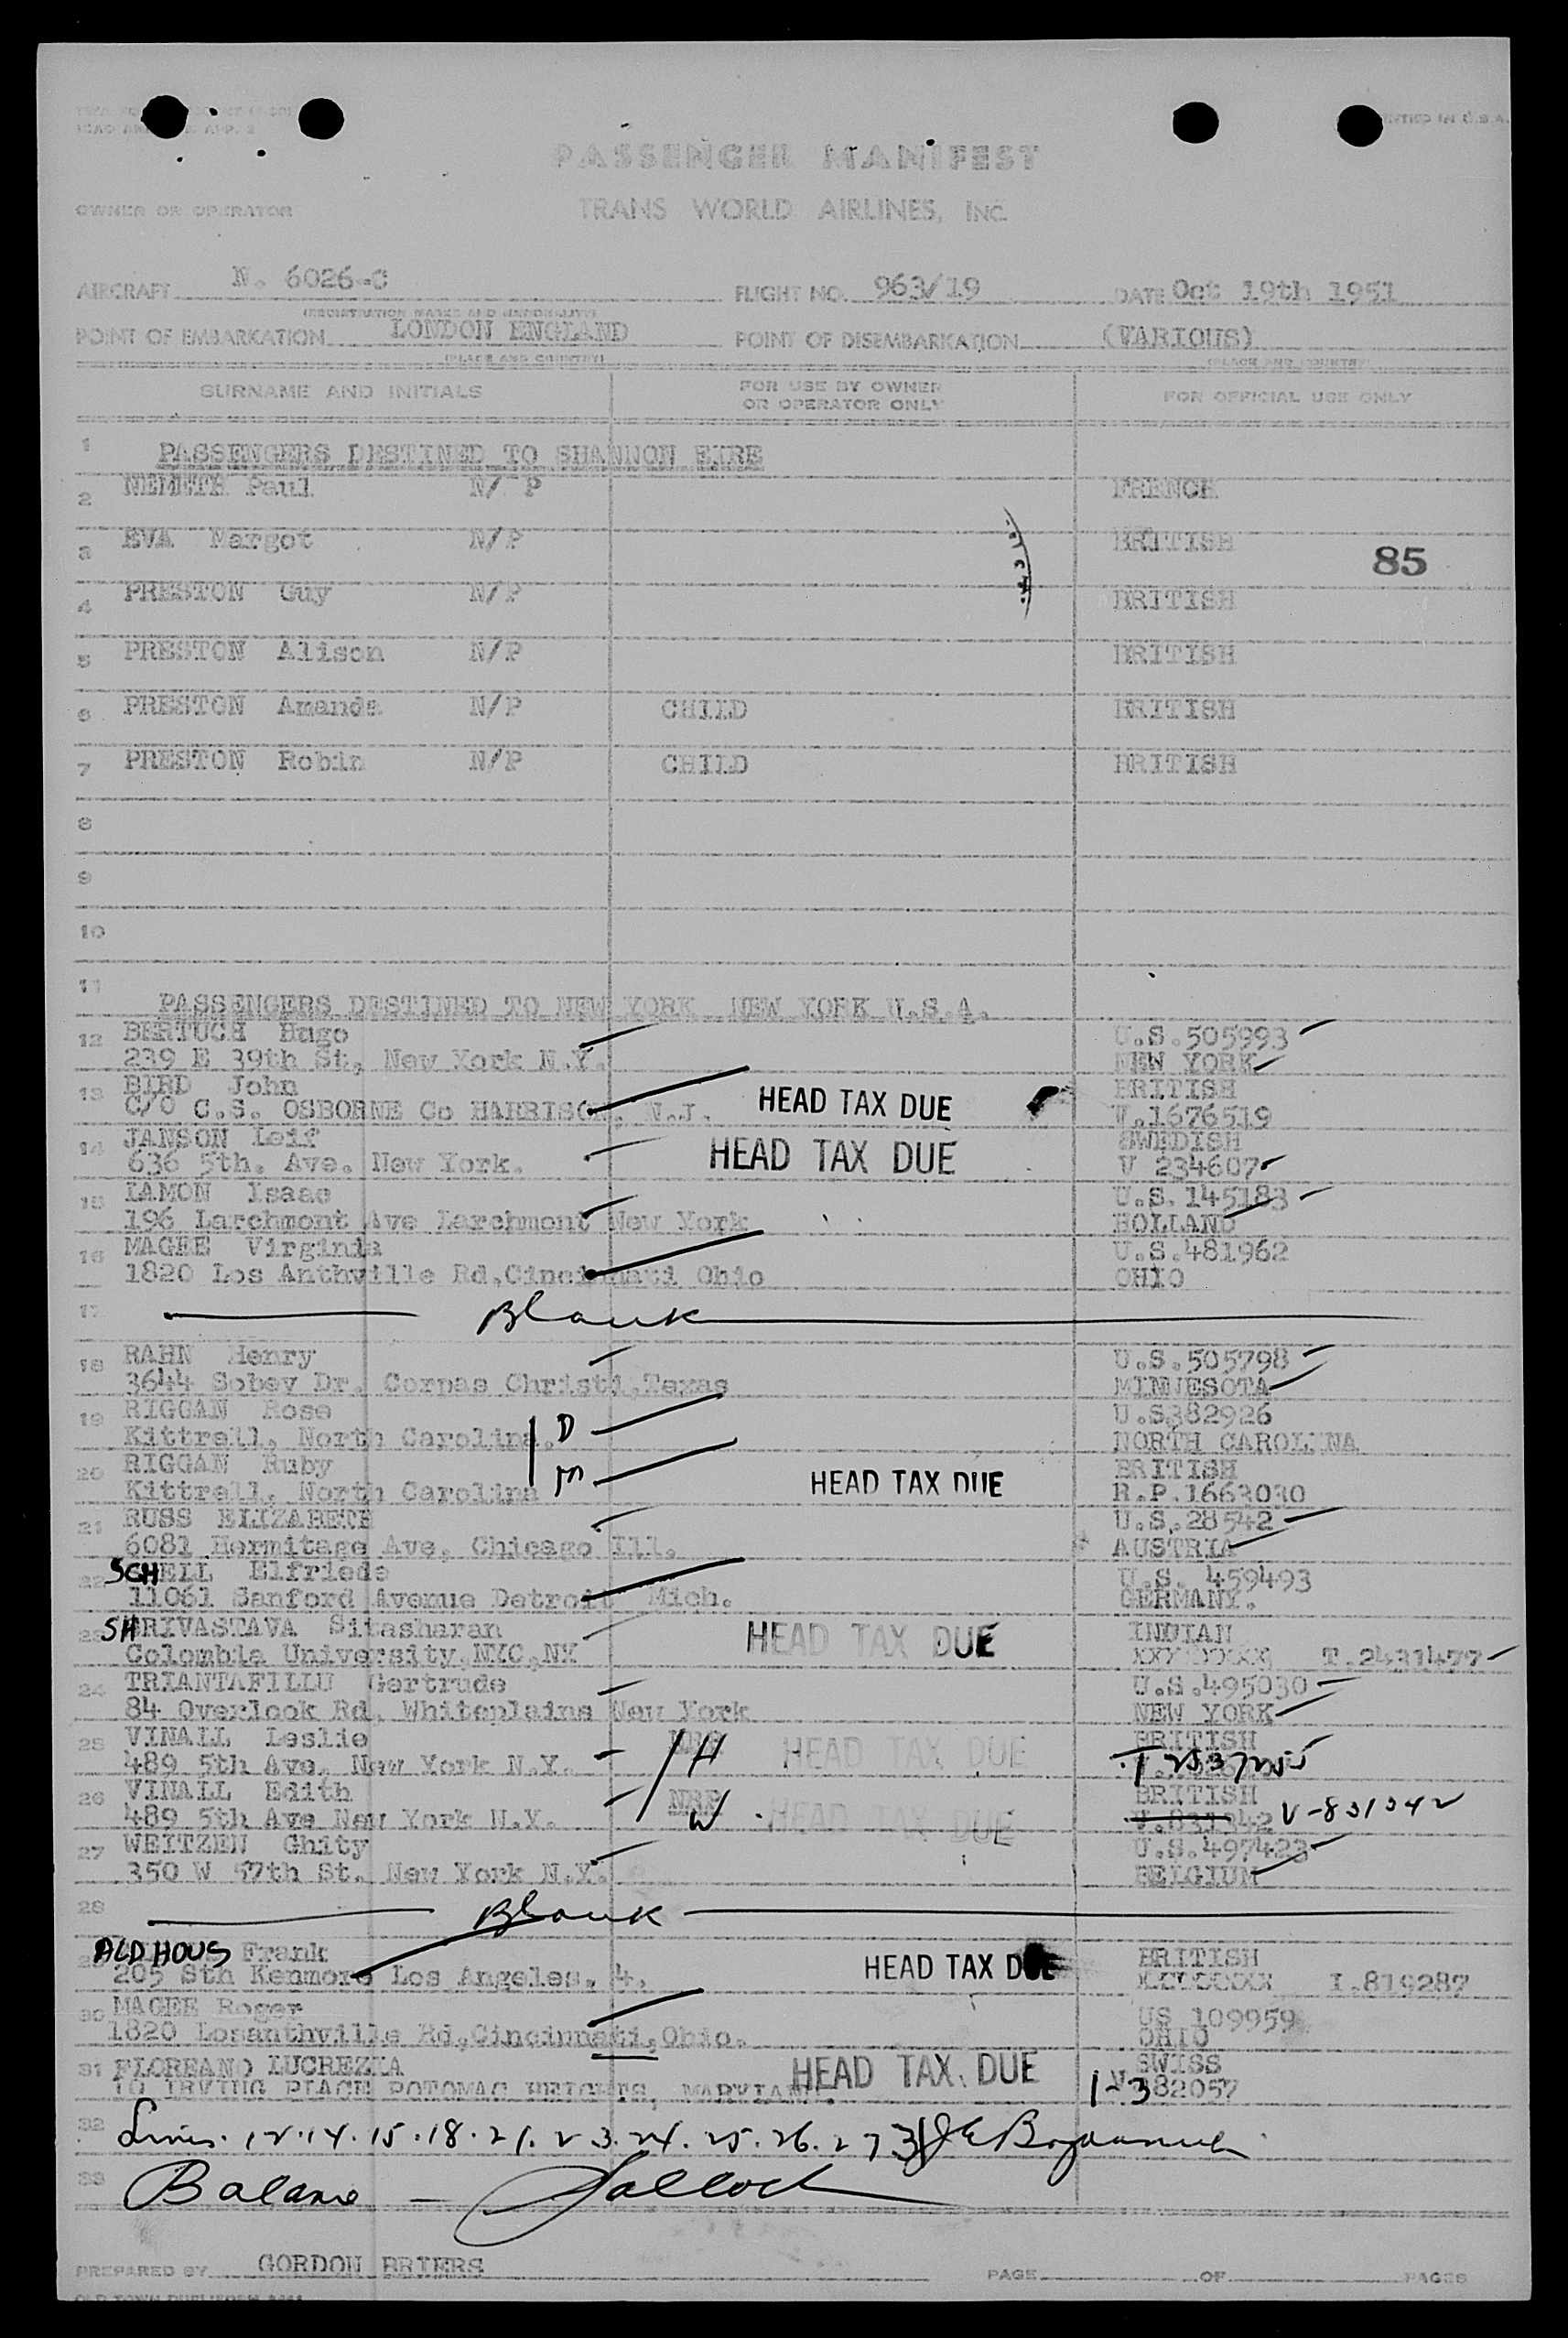 PRINTED IN U.S.A.
PASSENGER MANIFEST
OWNER OR OPERATOR TRANS WORLD AIRLINES, INC.
AIRCRAFT N. 6026-C FLIGHT NO. 963/19 DATE Oct 19th 1951
(REGISTRATION MARKS AND NATIONALITY)
POINT OF EMBARKATION LONDON ENGLAND POINT OF DISEMBARKATION (VARIOUS)
(PLACE AND COUNTRY) (PLACE AND COUNTRY)
SURNAME AND INITIALS FOR USE BY OWNER OR OPERATOR ONLY FOR OFFICIAL USE ONLY
1 PASSENGERS DESTINED TO SHANNON EIRE
2 NEMETH Paul N/ P FRENCH
3 EVA Margot N/P BRITISH 85
4 PRESTON Guy N/P BRITISH
5 PRESTON Alison N/P BRITISH
6 PRESTON Amanda N/P CHILD BRITISH
7 PRESTON Robin N/P CHILD BRITISH
8
9
10
11 PASSENGERS DESTINED TO NEW YORK NEW YORK U.S.A.
12 BERTUCH Hugo U.S.505993
239 E 39th St, New York N.Y. NEW YORK
13 BIRD John BRITISH
C/O C.S. OSBORNE Co HARRISON, N.J. HEAD TAX DUE V.1676519
14 JANSON Leif SWEDISH
636 5th. Ave. New York. HEAD TAX DUE V 234607
15 LAMON Isaac U.S.145183
196 Larchmont Ave Larchmont New York HOLLAND
16 MAGEE Virginia U.S.481962
1820 Los Anthville Rd,Cincinnati Ohio OHIO
17 Blank
18 RAHN Henry U.S.505798
3644 Sobey Dr. Corpas Christi,Texas MINNESOTA
19 RIGGAN Rose U.S382926
Kittrell, North Carolina. D NORTH CAROLINA
20 RIGGAN Ruby BRITISH
Kittrell, North Carolina M HEAD TAX DUE R.P.1663030
21 RUSS ELIZABETH U.S.28542
6081 Hermitage Ave, Chicago Ill. AUSTRIA
22 SCHELL Elfriede U.S. 459493
11061 Sanford Avenue Detroit Mich. GERMANY.
23 SHRIVASTAVA Sitasharan HEAD TAX DUE INDIAN
Colombia University,NYC,NY T.2431477
24 TRIANTAFILLU Gertrude U.S.495030
84 Overlook Rd. Whiteplains New York NEW YORK
25 VINALL Leslie H HEAD TAX DUE BRITISH
489 5th Ave. New York N.Y.
26 VINALL Edith W HEAD TAX DUE BRITISH
489 5th Ave New York N.Y. V.831342 V-831342
27 WEITZEN Ghity U.S.497423
350 W 57th St. New York N.Y. BELGIUM
28 Blank
29 ALDHOUS Frank HEAD TAX DUE BRITISH
205 Sth Kenmore Los Angeles. 4. I.819287
30 MAGEE Roger US 109959
1820 Losanthville Rd,Cincinnati,Ohio. OHIO
31 FLOREANO LUCREZIA HEAD TAX DUE SWISS
10 IRVING PLACE POTOMAC HEIGHTS, MARYLAND.
32 Lines. 12.14.15.18.21.23.24.25.26.27
33 Balance
PREPARED BY GORDON PAGE OF PAGES